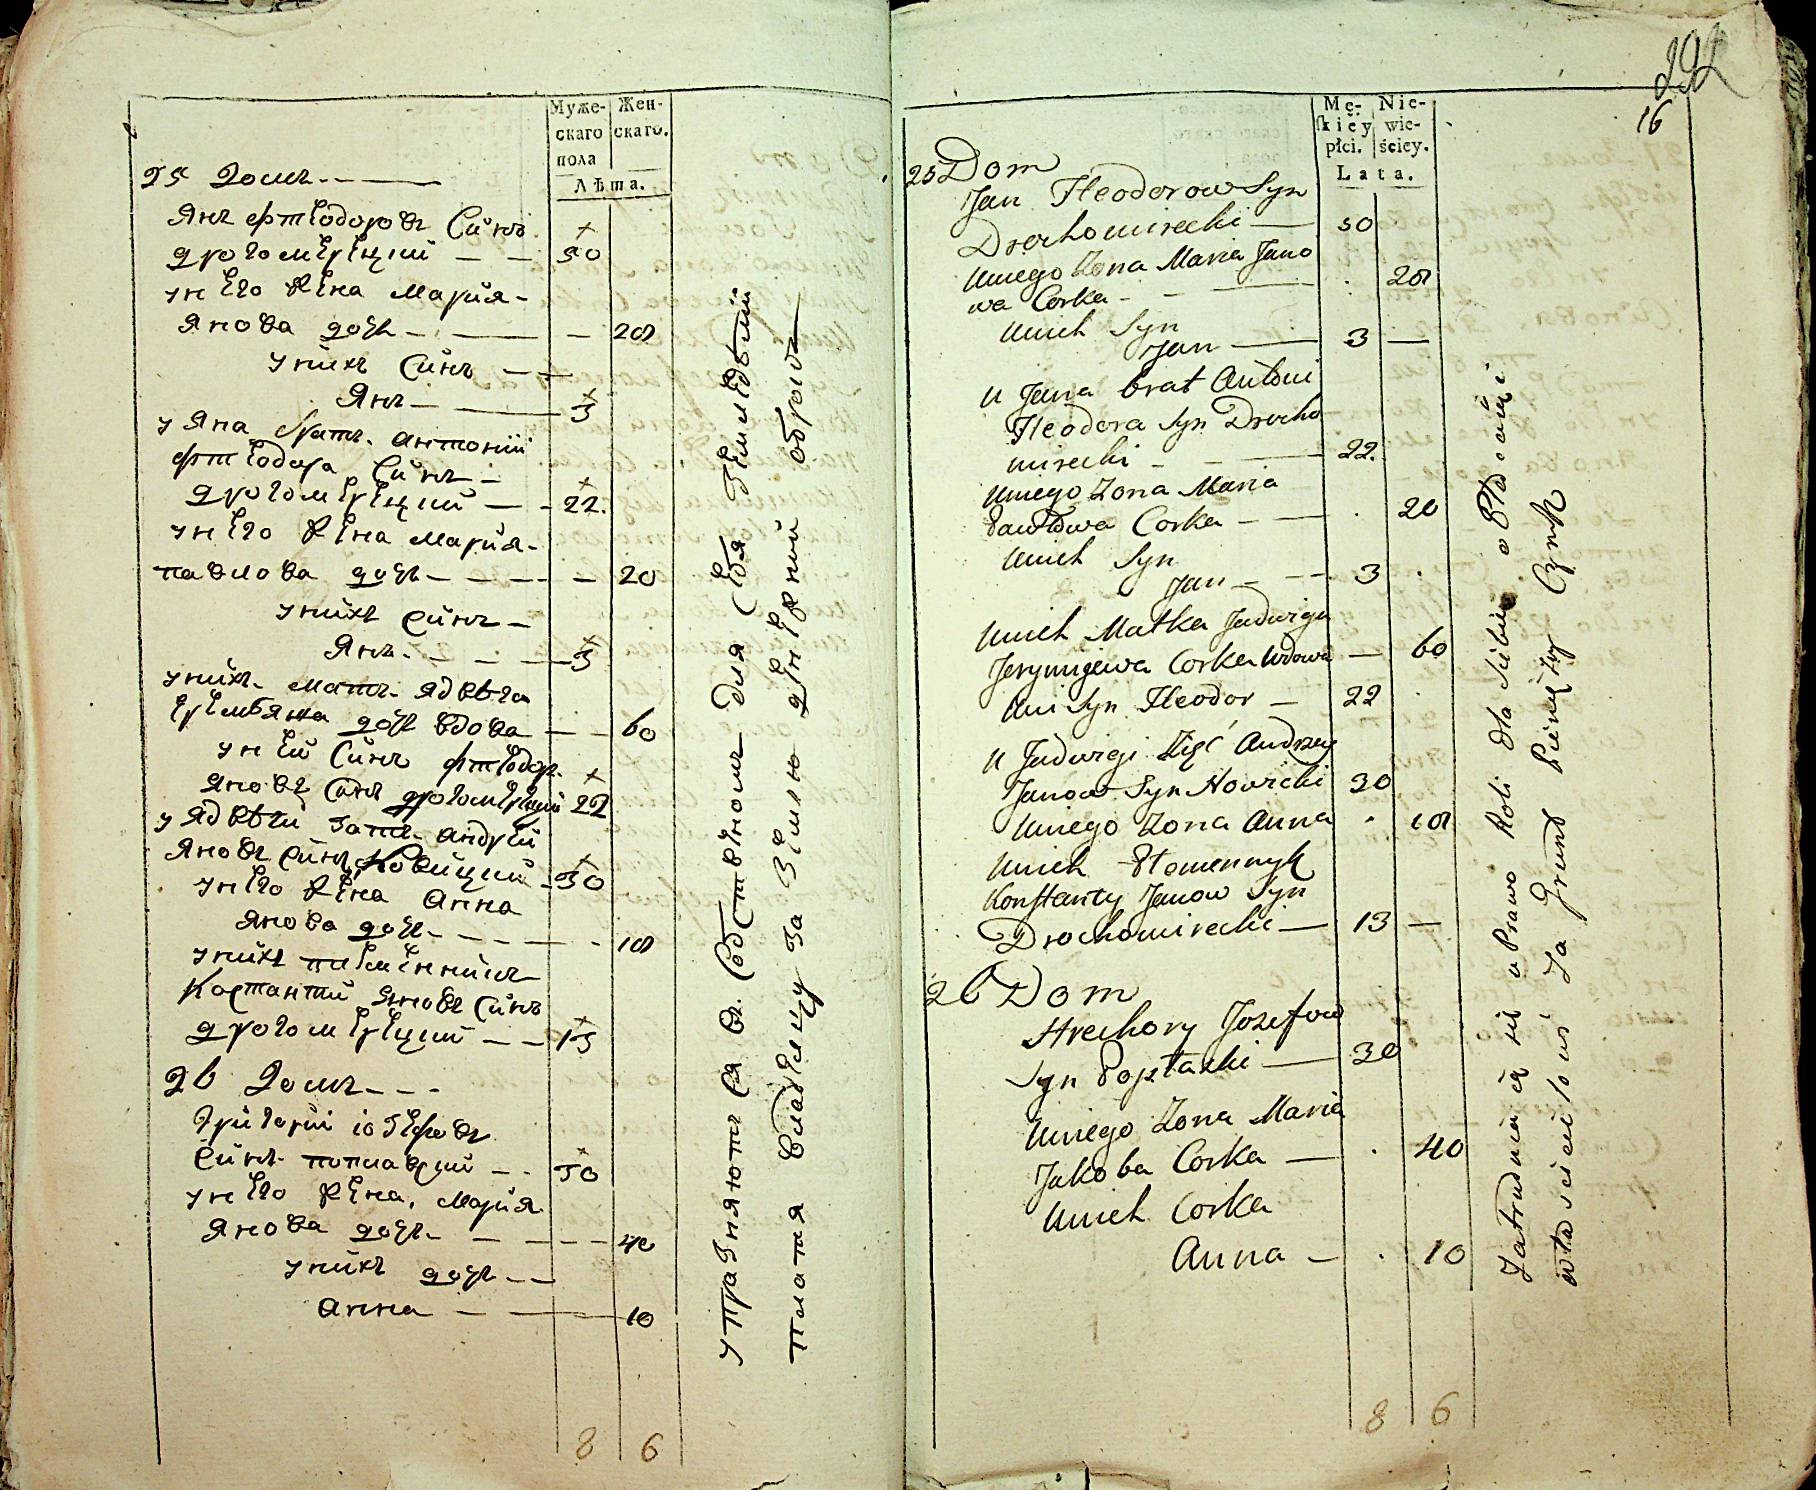 Муже- Жен-
скаго скаго.
пола
Лѣта.
25 Домъ
Янъ Фтеодоровъ Синъ
Дрогомерецкий 50
у него жена Мария
Янова дочь 20
у нихъ Синъ
Янъ 3
у Яна братъ Антоний
Фтеодора Синъ
Дрогомерецкий 22.
у него жена Мария
Павлова дочь 20
у нихъ Синъ
Янъ 3
у нихъ мать Ядвига
дочь вдова 60
у ней Синъ Фтеодор.
Яновъ Синъ Дрогомерецкий 22
у Ядвиги зать Андрей
Яновъ Синъ Новицкий 30
у него жена Анна
Янова дочь 18
у нихъ племенникъ
Костантий Яновъ Синъ
Дрогомерецкий 13
26 Домъ
Григорий Іозефовъ
Синъ Поплавский 30
у него жена Мария
Янова дочь 40
у нихъ дочь
Анна 10
8 6
упразняютъся въ Собственомъ для Себя Земледелии
платя владелцу за Землю денежний оброкъ
292
16
Mę- Nie-
skiey wie-
płci. ściey.
Lata.
25 Dom
Jan Fteodorow Syn
Drochomirecki 50
Uniego Zona Maria Jano
wa Corka 20
Unich Syn
Jan 3
U Jana brat Antoni
Fteodora Syn Drocho
mirecki 22.
Uniego Zona Maria
Pawłowa Corka 20
Unich Syn
Jan 3
Unich Matka Jadwiga
Corka Wdowa 60
Syn Fteodor 22
U Jadwigi Zięć Andrzey
Janow Syn Nowicki 30
Uniego Zona Anna 18
Unich Plemennyk
Konstanty Janow Syn
Drochomirecki 13
26 Dom
Hrehory Jozefow
Syn Popławski 30
Uniego Zona Maria
Jakoba Corka 40
Unich Corka
Anna 10
8 6
Zatrudnia się uprawo Roli dla Siebie a
Za Grunt Pienięzny Czynsz